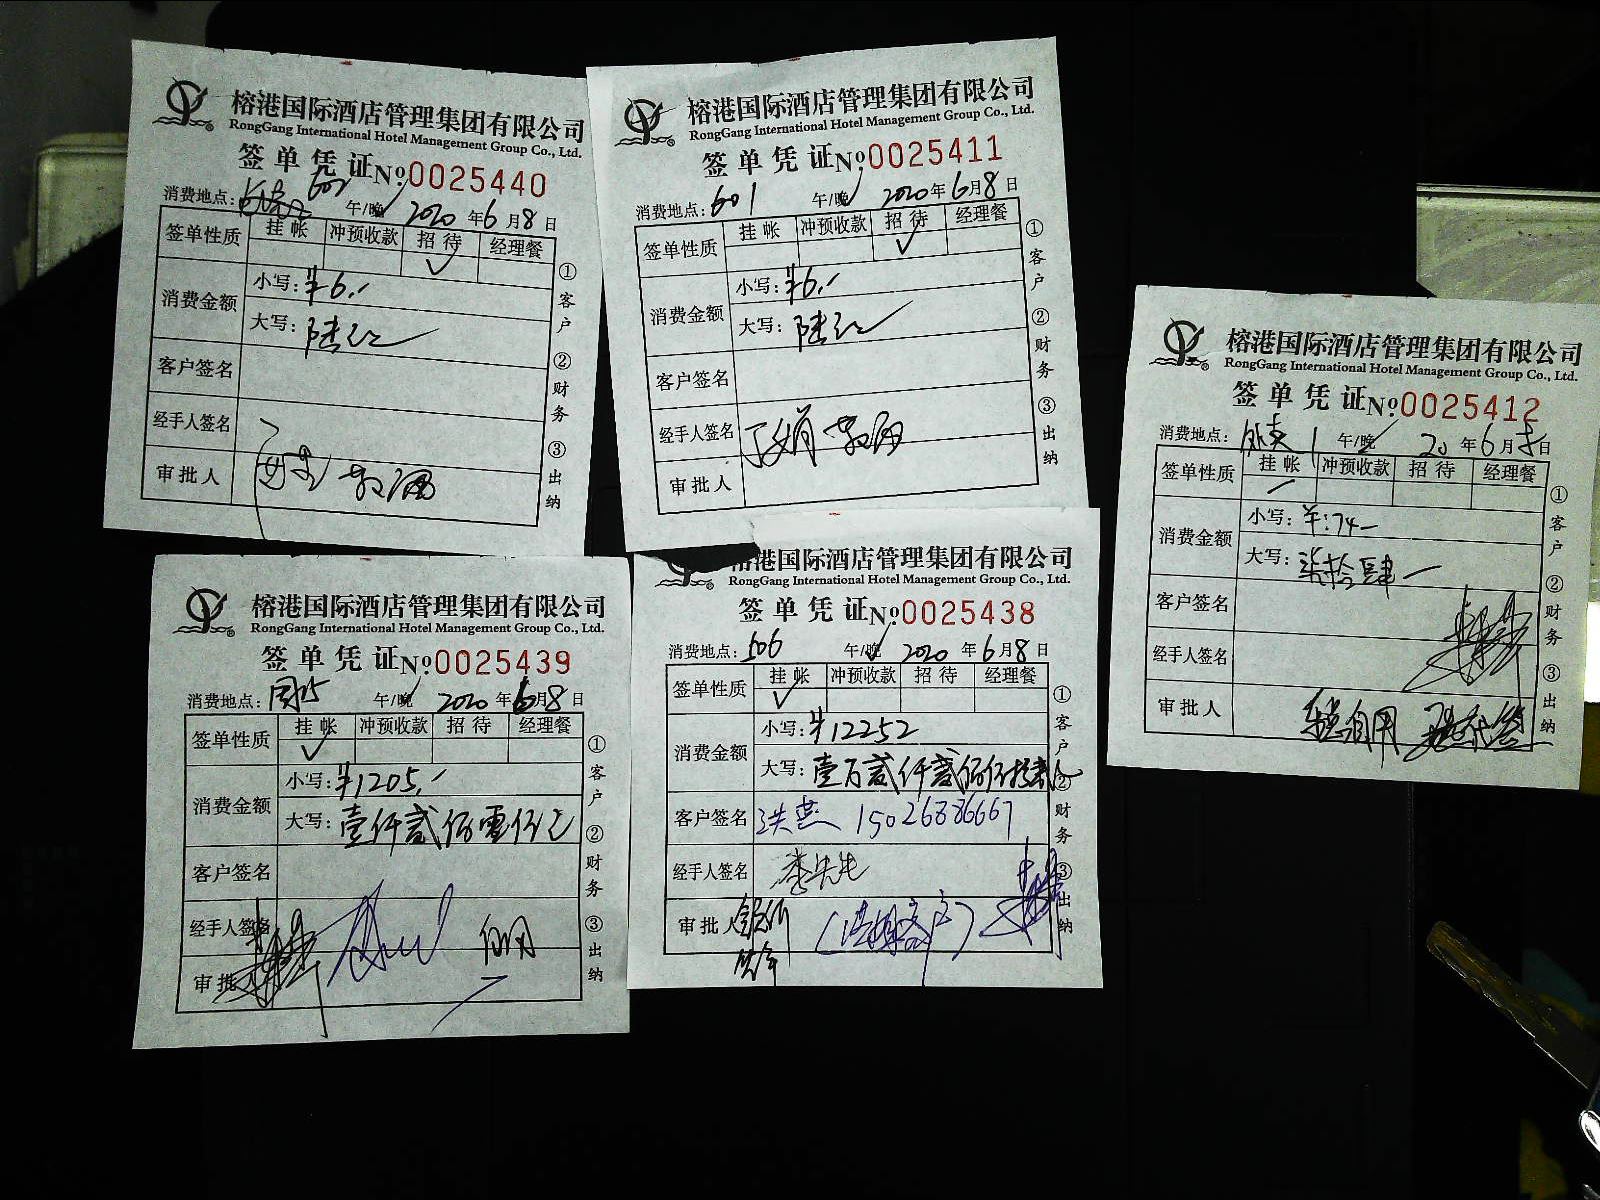 榕港国际酒店管理集团有限公司
RongGang International Hotel Management Group Co., Ltd.
签单凭证 No.0025440
消费地点: 602 午/晚 2020年6月8日
签单性质 挂帐 冲预收款 招待 经理餐
✓
消费金额 小写: ¥6.-
大写: 陆元
客户签名
经手人签名
审批人
①客户 ②财务 ③出纳
榕港国际酒店管理集团有限公司
RongGang International Hotel Management Group Co., Ltd.
签单凭证 No.0025411
消费地点: 601 午/晚 2020年6月8日
签单性质 挂帐 冲预收款 招待 经理餐
✓
消费金额 小写: ¥6.-
大写: 陆元
客户签名
经手人签名
审批人
①客户 ②财务 ③出纳
榕港国际酒店管理集团有限公司
RongGang International Hotel Management Group Co., Ltd.
签单凭证 No.0025412
消费地点: 外卖1 午/晚 20年6月8日
签单性质 挂帐 冲预收款 招待 经理餐
消费金额 小写: ¥:74-
大写: 柒拾肆
客户签名
经手人签名
审批人
①客户 ②财务 ③出纳
榕港国际酒店管理集团有限公司
RongGang International Hotel Management Group Co., Ltd.
签单凭证 No.0025439
消费地点: 午/晚 2020年6月8日
签单性质 挂帐 冲预收款 招待 经理餐
✓
消费金额 小写: ¥1205.-
大写: 壹仟贰佰零伍元
客户签名
经手人签名
审批人
①客户 ②财务 ③出纳
港国际酒店管理集团有限公司
RongGang International Hotel Management Group Co., Ltd.
签单凭证 No.0025438
消费地点: 506 午/晚 2020年6月8日
签单性质 挂帐 冲预收款 招待 经理餐
✓
消费金额 小写: ¥12252
大写: 壹万贰仟贰佰伍拾贰元
客户签名 洪燕 15026886667
经手人签名 李先生
审批人
①客户 ②财务 ③出纳